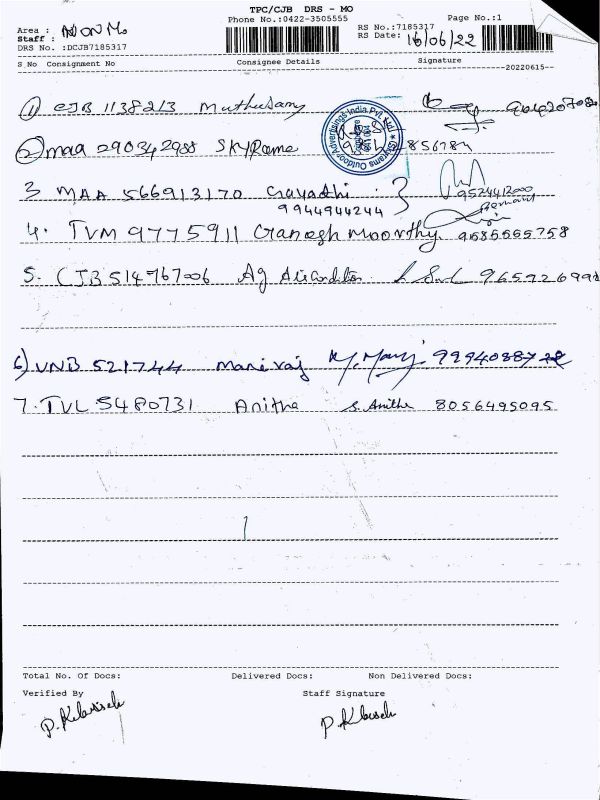 TPC/CJB DRS - MO
Phone No.:0422-3505555
Page No.:1
Area : NON Mo
RS No.:7185317
Staff :
RS Date: 16/06/22
DRS No. :DCJB7185317
S No Consignment No Consignee Details Signature
20220615
1 CJB 1138213 Muthusamy
2 maa 290342988 SKYRams 856784
3 MAA 566913170 Gayadhi 9524412000
9944944244
4. TVM 9775911 Ganesh Moorthy 9585555758
5. CJB 514767006 Ag Aircondition
6) VNB 521744 Maniraj M. Manj
7. TVL 5480731 Anitha S. Anitha 8056495095
Total No. Of Docs: Delivered Docs: Non Delivered Docs:
Verified By Staff Signature